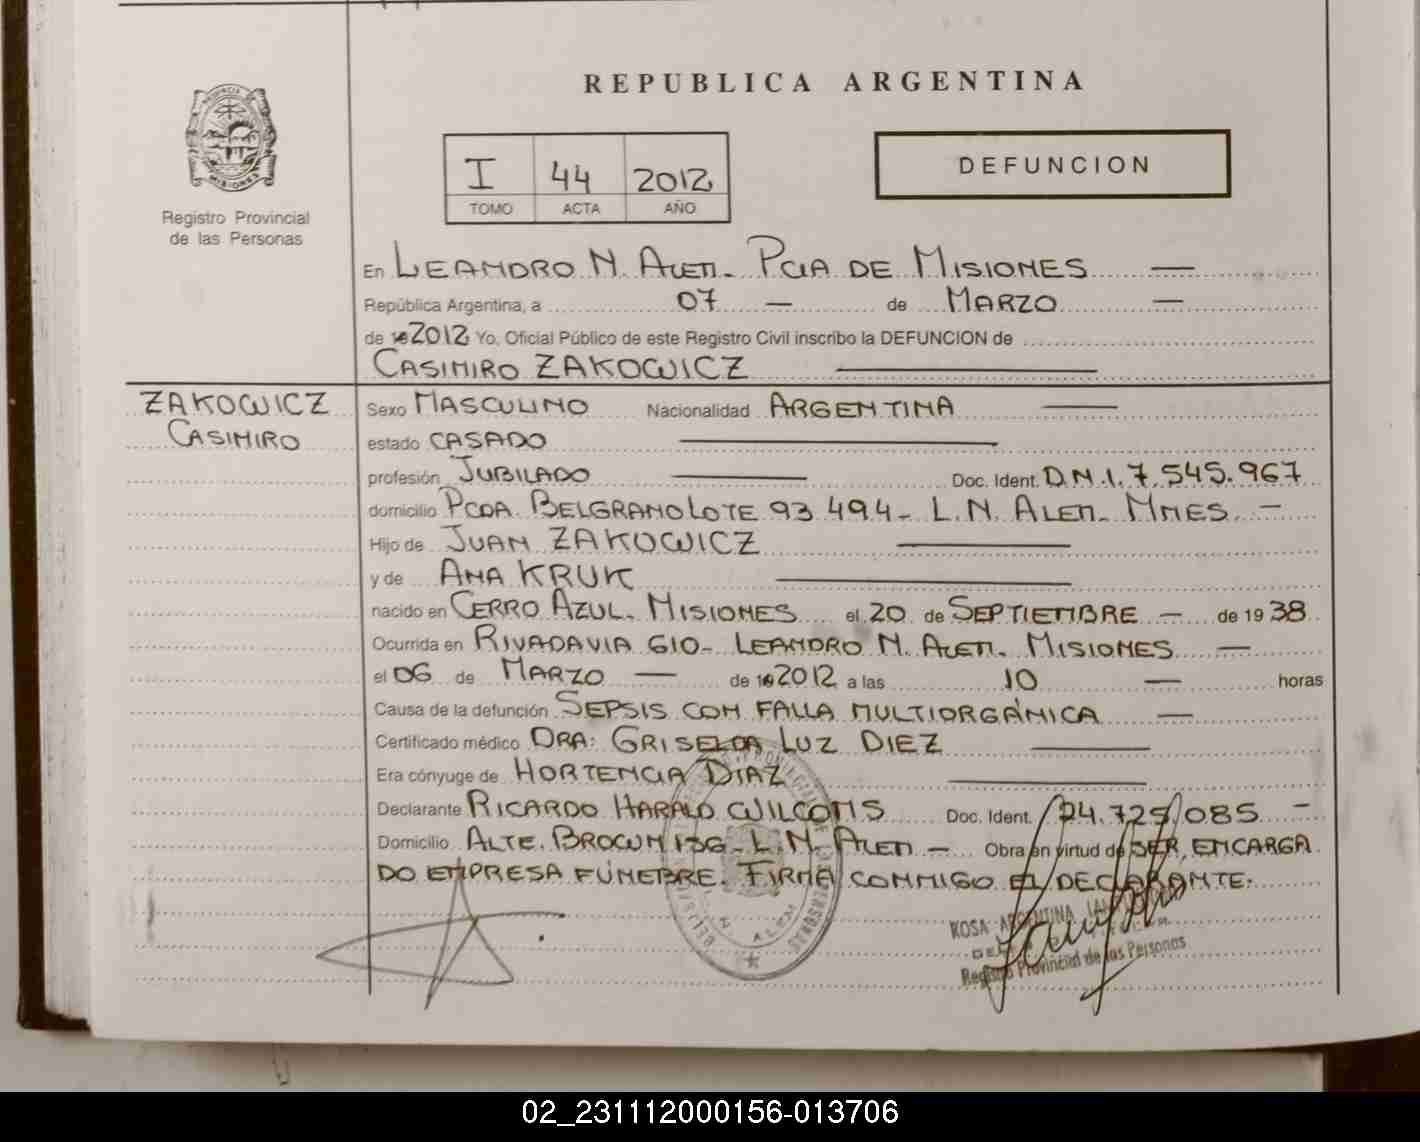 REPUBLICA ARGENTINA
DEFUNCION
I 44 2012
TOMO ACTA AÑO
PROVINCIA DE
MISIONES
Registro Provincial
de las Personas
En LEANDRO N. ALEM. PCIA DE MISIONES —
República Argentina, a 07 — de MARZO —
de 2012 Yo, Oficial Público de este Registro Civil inscribo la DEFUNCION de
CASIMIRO ZAKOWICZ —
ZAKOWICZ
CASIMIRO
Sexo MASCULINO Nacionalidad ARGENTINA —
estado CASADO —
profesión JUBILADO — Doc. Ident. D.N.I. 7.545.967
domicilio PCDA. BELGRANO LOTE 93 494 - L.N. ALEM. MNES. —
Hijo de JUAN ZAKOWICZ —
y de ANA KRUK —
nacido en CERRO AZUL. MISIONES el 20 de SEPTIEMBRE — de 1938
Ocurrida en RIVADAVIA 610 - LEANDRO N. ALEM. MISIONES —
el 06 de MARZO — de 2012 a las 10 — horas
Causa de la defunción SEPSIS CON FALLA MULTIORGÁNICA —
Certificado médico DRA: GRISELDA LUZ DIEZ —
Era cónyuge de HORTENCIA DIAZ —
Declarante RICARDO HARALD WILCOMS Doc. Ident. 24.725.085 —
Domicilio ALTE. BROWN 136 - L.N. ALEM — Obra en virtud de SER, ENCARGA
DO EMPRESA FÚNEBRE. FIRMA CONMIGO EL DECLARANTE.
N. ALEM
ROSA ARGENTINA
Registro Provincial de las Personas
02_231112000156-013706